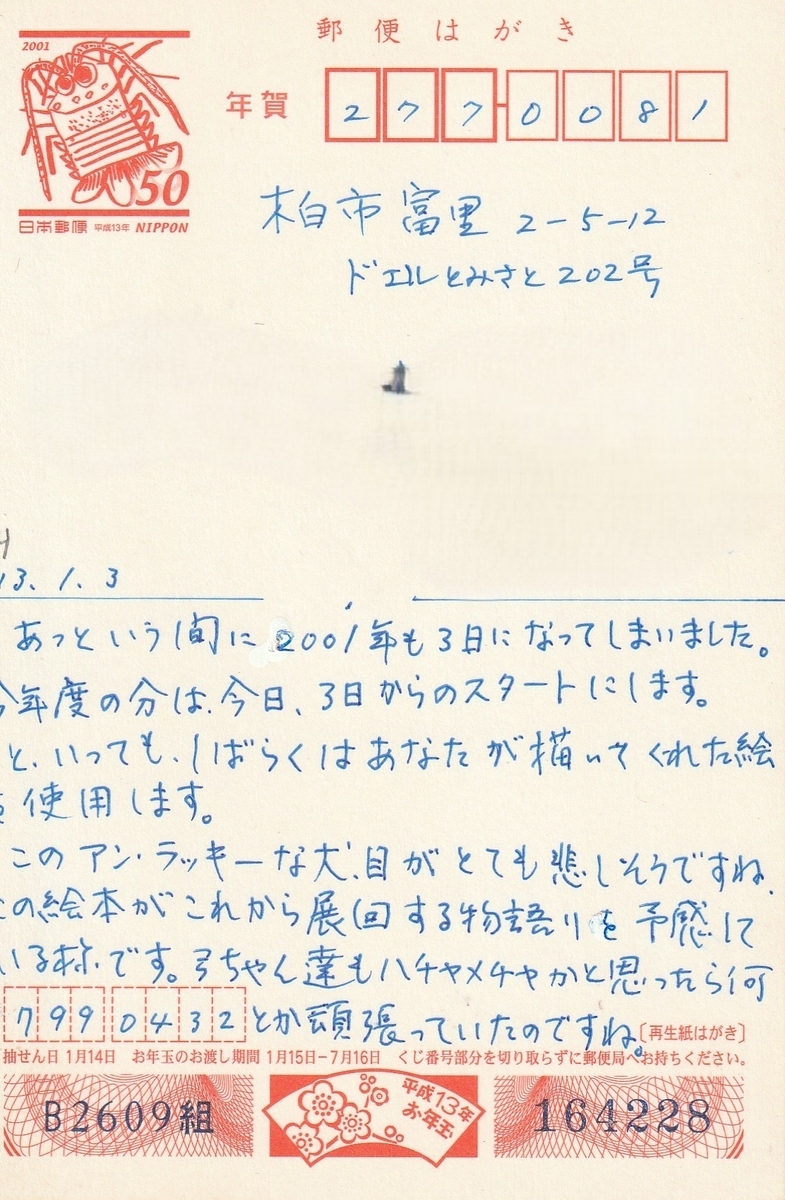 郵便はがき
2001
年賀
2770081
50
日本郵便 平成13年 NIPPON
柏市富里 2-5-12
ドエルとみさと202号
13.1.3
あっという間に2001年も3日になってしまいました。
今年度の分は、今日、3日からのスタートにします。
と、いっても、しばらくはあなたが描いてくれた絵
を使用します。
このアン・ラッキーな犬、目がとても悲しそうですね、
この絵本がこれから展回する物語りを予感して
いる様です。弓ちゃん達もハチャメチャかと思ったら何
とか頑張っていたのですね。
7990432
〔再生紙はがき〕
抽せん日 1月14日 お年玉のお渡し期間 1月15日-7月16日 くじ番号部分を切り取らずに郵便局へお持ちください。
B2609組
平成13年
お年玉
164228